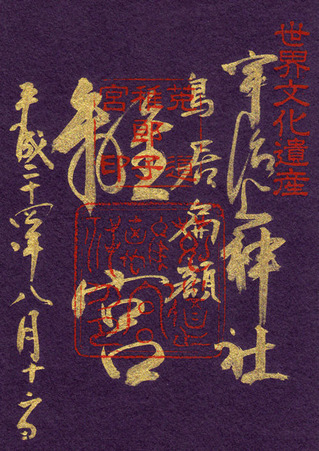 世界文化遺産
宇治上神社
鳥居扁額
離宮
平成二十四年八月十六日
菟道
稚郎子
宮印